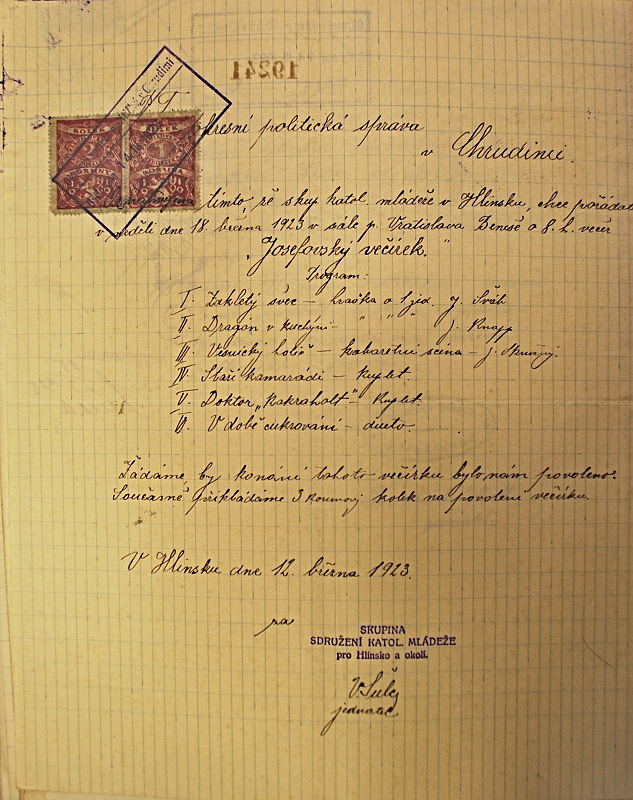 19241
Chrudimi
KOLEK KOLEK
2 1
politická správa
v Chrudimi.
tímto, že skup. katol. mládeže v Hlinsku, chce pořádat
v neděli dne 18. března 1923 v sále p. Vratislava Beneše o 8. h. večer
„Josefovský večírek."
Program:
I. Zakletý švec – hračka o 1 jed. J. Šváb
II. Dragoun v kuchyni – " " " J. Knapp
III. Vesnický holič – kabaretní scéna – J.
IV. Staří kamarádi – Kuplet.
V. Doktor „Rakraholt" – Kuplet.
VI. V době cukrování – dueto.
Žádáme, by konání tohoto večírku bylo nám povoleno.
Současně přikládáme 3 korunový kolek na povolení večírku.
V Hlinsku dne 12. března 1923.
za
SKUPINA
SDRUŽENÍ KATOL. MLÁDEŽE
pro Hlinsko a okolí.
V. Šulc
jednatel